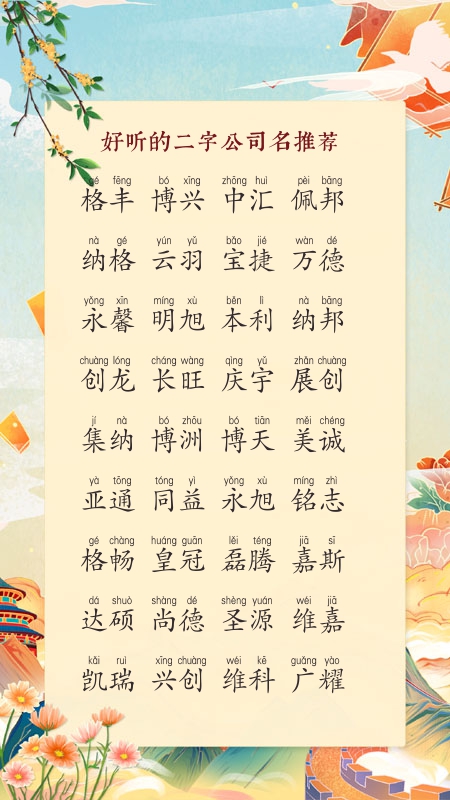 好听的二字公司名推荐
gé fēng bó xīng zhōng huì pèi bāng
格丰 博兴 中汇 佩邦
nà gé yún yǔ bǎo jié wàn dé
纳格 云羽 宝捷 万德
yǒng xīn míng xù běn lì nà bāng
永馨 明旭 本利 纳邦
chuàng lóng cháng wàng qìng yǔ zhǎn chuàng
创龙 长旺 庆宇 展创
jí nà bó zhōu bó tiān měi chéng
集纳 博洲 博天 美诚
yà tōng tóng yì yǒng xù míng zhì
亚通 同益 永旭 铭志
gé chàng huáng guān lěi téng jiā sī
格畅 皇冠 磊腾 嘉斯
dá shuò shàng dé shèng yuán wéi jiā
达硕 尚德 圣源 维嘉
kǎi ruì xīng chuàng wéi kē guǎng yào
凯瑞 兴创 维科 广耀